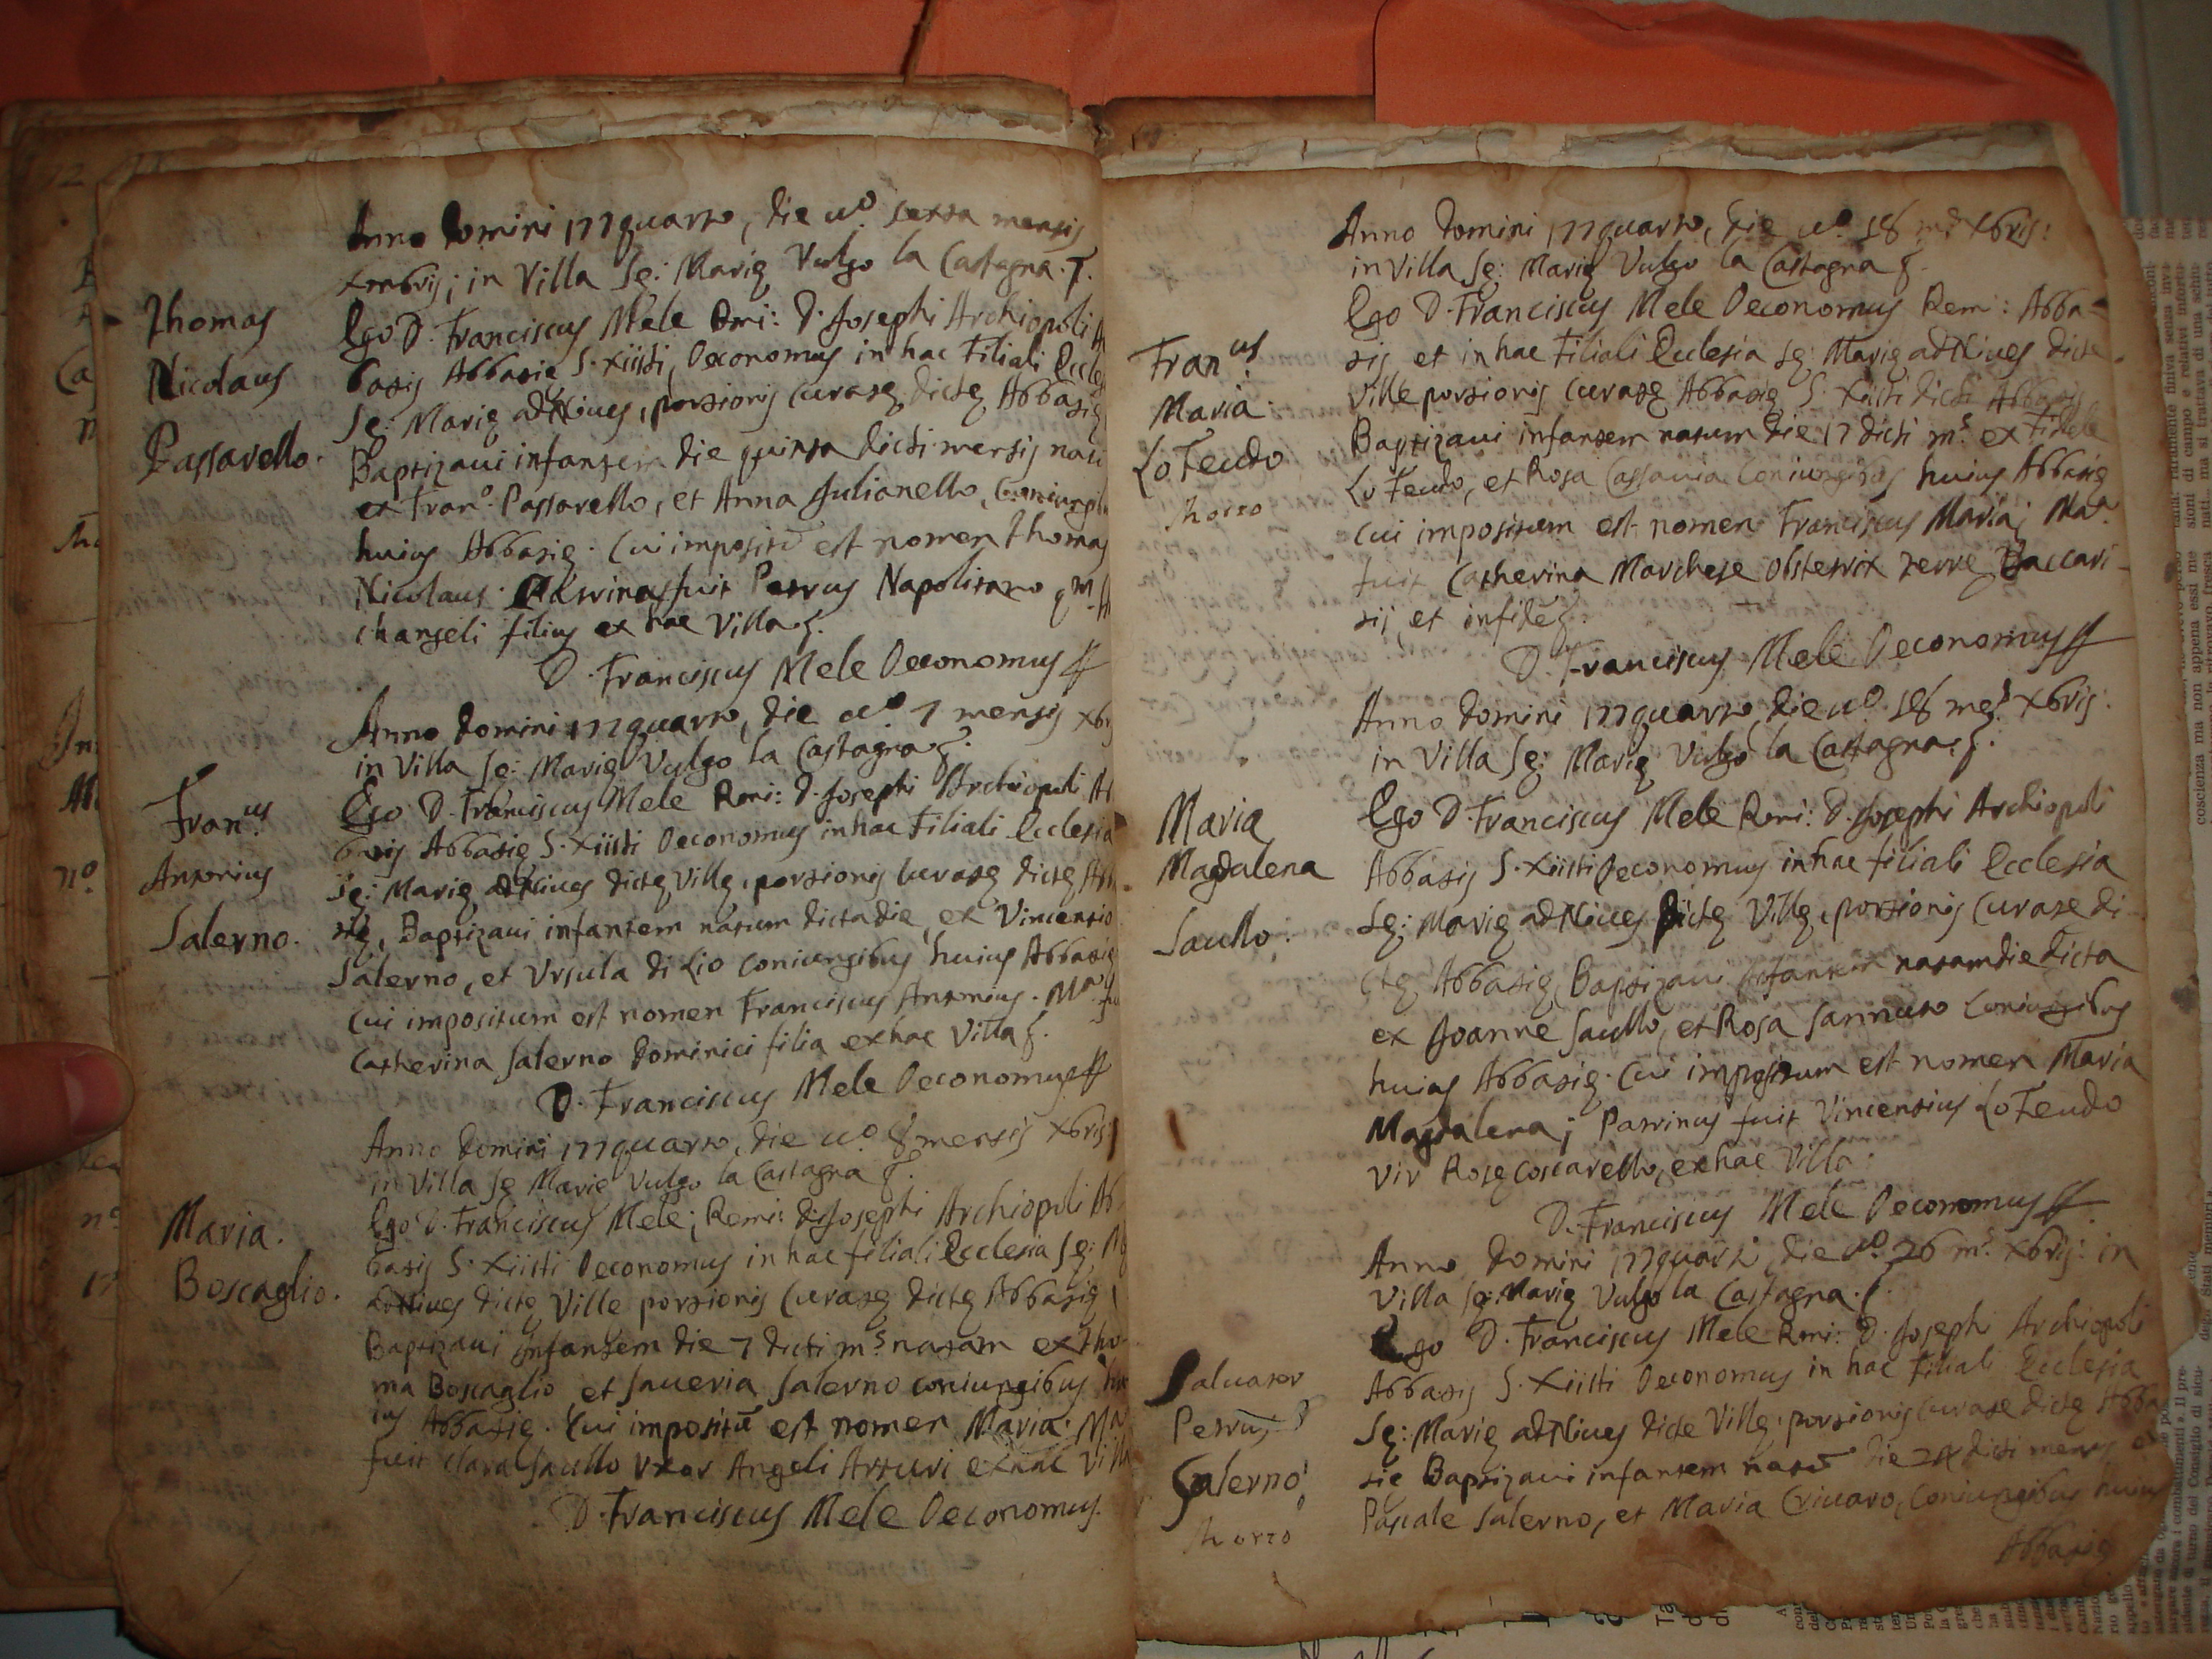 Thomas
Nicolaus
Passarello.
Anno Domini 177quarto, die uo. sexta mensis
Xmbris; in Villa Sę: Marię Vulgo la Castagna.
Ego D. Franciscus Mele Rmi: D. Josephi Archiopoli
basis Abbasię S. Xiisti, Oeconomus in hac Filiali Eccle
Sę: Marię ad Niues, porsionis Curasę Dictę Abbasię
Baptizaui infantem die quinta dicti mensis nau
ex Frano. Passarello, et Anna Julianello, Coniungib
huius Abbasię. Cui impositū est nomen Thomas
Nicolaus. Patrinus fuit Petrus Napolitano qm.
changeli filius ex hac Villa.
D. Franciscus Mele Oeconomus
Franus.
Antonius
Salerno.
Anno Domini 177quarto, die uo. 7 mensis Xbr
in Villa Sę: Marię Vulgo la Castagna.
Ego D. Franciscus Mele Rmi: D. Josephi Archiopoli
basis Abbasię S. Xiisti Oeconomus in hac Filiali Ecclesia
Sę: Marię ad Niues dictę Villę, porsionis Curasę dictę
Baptizaui infantem natum dicta die, ex Vincentio
Salerno, et Ursula di Lio coniungibus huius Abbasię
Cui impositum est nomen Franciscus Antonius. Ma.
Catherina Salerno Dominici filia ex hac Villa.
D. Franciscus Mele Oeconomus
Maria.
Boscaglio.
Anno Domini 177quarto, die uo. 8 mensis Xbris
in Villa Sę Marie Vulgo la Castagna.
Ego D. Franciscus Mele; Remi: D. Josephi Archiopoli Ab
basis S. Xiisti Oeconomus in hac filiali Ecclesia Sę:
ad Niues dictę Ville porsionis Curasę dictę Abbasię
Baptizaui infantem die 7 dicti ms. natam ex Tho
ma Boscaglio, et Saueria Salerno coniungibus hu
ius Abbasię. Cui impositū est nomen Maria. Ma
fuit Clara Saullo Vxor Angeli Arturi ex hac Villa
D. Franciscus Mele Oeconomus.
Franus.
Maria
Lo Feudo
Morto
Anno Domini 177quarto, die uo. 18 ms Xbris:
in Villa Sę: Marię Vulgo la Castagna.
Ego D. Franciscus Mele Oeconomus Rem: Abba-
sis et in hac Filiali Ecclesia Sę: Marię ad Niues dicte
Ville porsionis Curasę Abbasię S. Xiisti dicti Abbasis
Baptizaui infantem natum die 17 dicti ms. ex Fidele
Lo Feudo, et Rosa Cassauia Coniungibus huius Abbasię
Cui impositum est nomen Franciscus Maria; Ma.
fuit Catherina Marchese Obstetrix terre Baccari-
sij, et in fidē.
D. Franciscus Mele Oeconomus
Maria
Magdalena
Saullo.
Anno Domini 177quarto, die uo. 18 mes. Xbris.
in Villa Sę: Marię Vulgo la Castagna.
Ego D. Franciscus Mele Rmi: D. Josephi Archiopoli
Abbasis S. Xiisti Oeconomus in hac filiali Ecclesia
Sę: Marię ad Niues dictę Villę, porsionis Curase di-
ctę Abbasię, Baptizaui infantem natam die dicta
ex Joanne Saullo, et Rosa Sannuto Coniungibus
huius Abbasię. Cui impositum est nomen Maria
Magdalena; Patrinus fuit Vincentius Lo Feudo
vir Rosę Coscarello, ex hac Villa.
D. Franciscus Mele Oeconomus
Saluator
Petrus
Salerno
Morto
Anno Domini 177quarto, die uo. 26 ms. Xbris: in
Villa Sę: Marię Vulgo la Castagna.
Ego D. Franciscus Mele Rmi: D. Josephi Archiopoli
Abbasis S. Xiisti Oeconomus in hac Filiali Ecclesia
Sę: Marię ad Niues dicte Villę, porsionis Curase dictę Abba
sie Baptizaui infantem natū die 24 dicti mensis
Pascale Salerno, et Maria Criuaro, Coniungibus huius
Abbasię